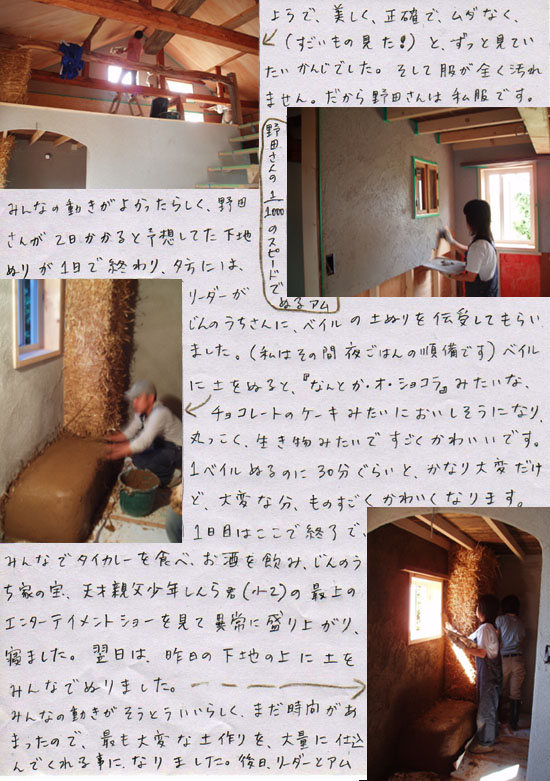 ようで、美しく、正確で、ムダなく、
(すごいもの見た!)と、ずっと見てい
たいかんじでした。そして服が全く汚れ
ません。だから野田さんは私服です。
野田さんの1/1000のスピードで
ぬるアム
みんなの動きがよかったらしく、野田
さんが2日かかると予想してた下地
ぬりが1日で終わり、夕方には、
リーダーが
じんのうちさんに、ベイルの土ぬりを伝受してもらい
ました。(私はその間夜ごはんの順備です)ベイル
に土をぬると、『なんとか・オ・ショコラ』みたいな、
チョコレートのケーキみたいにおいしそうになり、
丸っこく、生き物みたいですごくかわいいです。
1ベイルぬるのに30分ぐらいと、かなり大変だけ
ど、大変な分、ものすごくかわいくなります。
1日目はここで終了で、
みんなでタイカレーを食べ、お酒を飲み、じんのう
ち家の宝、天才親父少年しんら君(小2)の最上の
エンターテイメントショーを見て異常に盛り上がり、
寝ました。翌日は、昨日の下地の上に土を
みんなでぬりました。
みんなの動きがそうとういいらしく、まだ時間があ
まったので、最も大変な土作りを、大量に仕込
んでくれる事になりました。後日、リーダーとアム